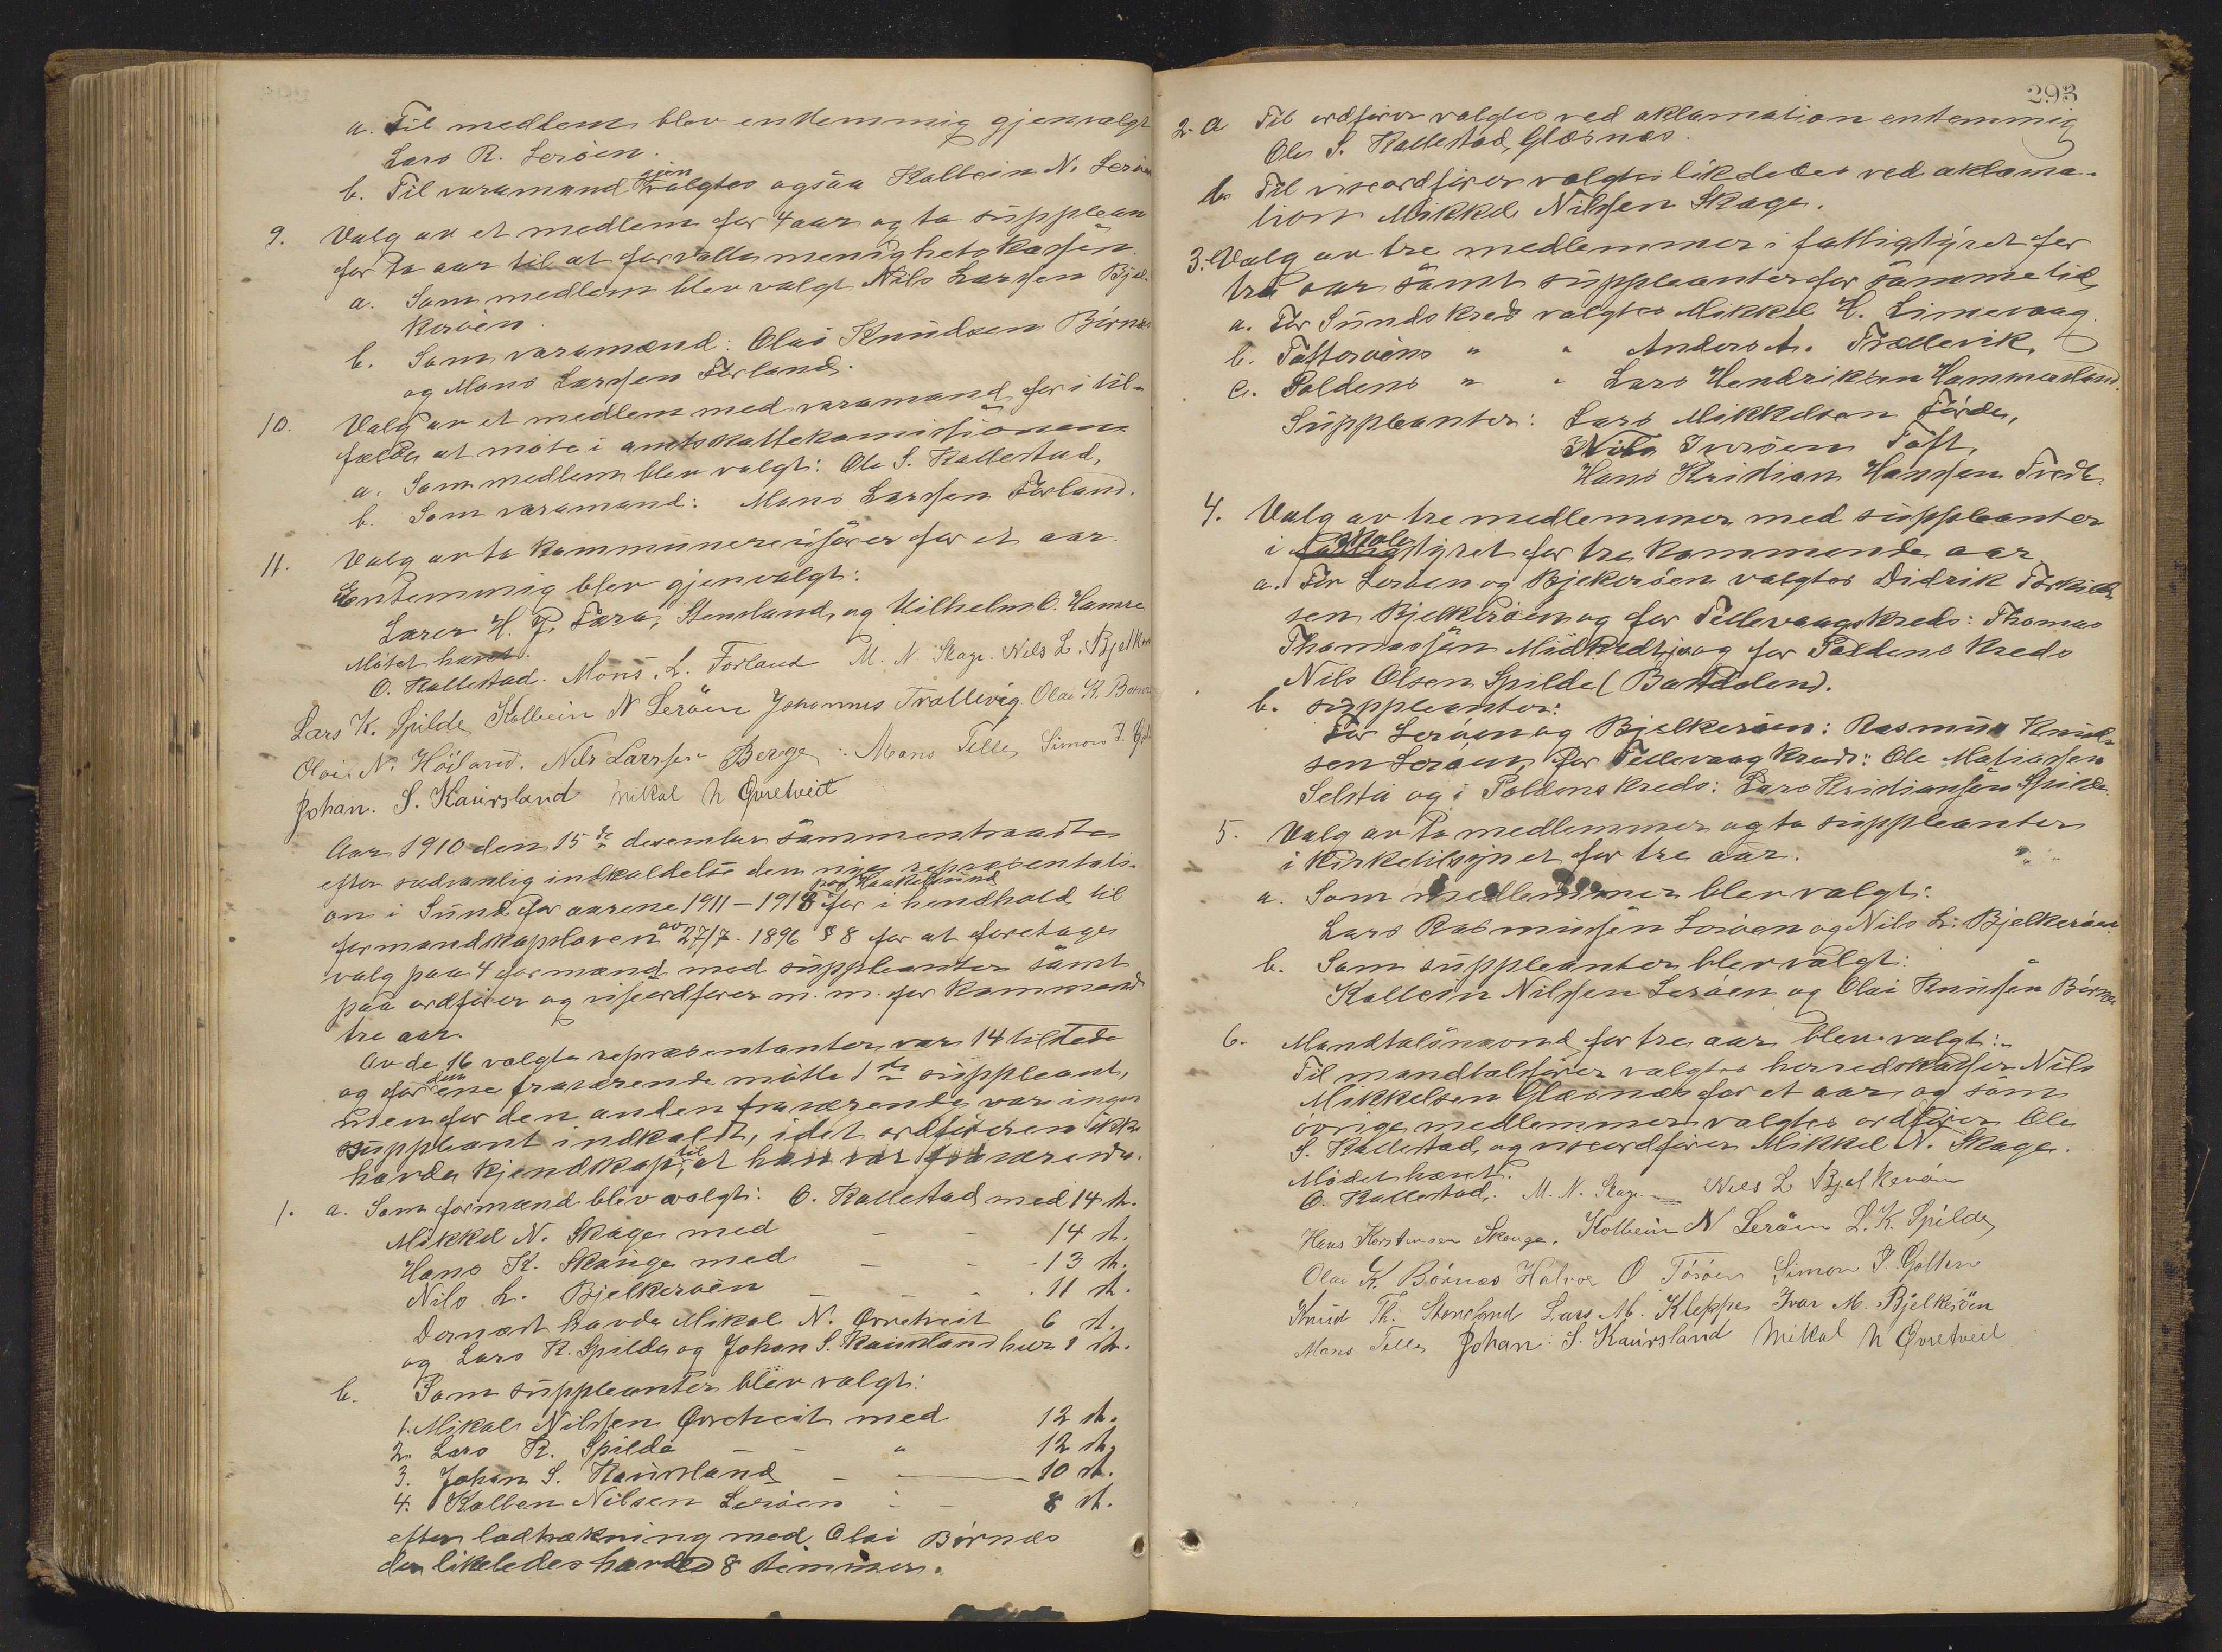 a. Til medlem blev enstemmig gjenvalgt
Lars R. Lerøen.
b. Til varamand gjenvalgtes også Kolbein N. Lerøen
9. Valg av et medlem for 4 aar og to supplean
for to aar til at forvalte menighetskassen.
a. Som medlem blev valgt Nils Larssen Bjel-
kerøen.
b. Som varamænd: Olai Knudsen Børnes
og Mons Larssen Førland.
10. Valg av et medlem med varamand for i til-
fælde at møte i amtsskattekomissionen
a. Som medlem blev valgt: Ole S. Kallestad,
b. Som varamand: Mons Larssen Førland.
11. Valg av to kommunerevisorer for et aar.
Enstemmig blev gjenvalgt:
Lærer H. P. Tæra, Steinsland, og Vilhelm O. Hamre
Møtet hævet.
O. Kallestad. Mons. L. Førland M. N. Skage. Nils L. Bjelker
Lars K. Spilde Kolbein N Lerøen Johannes Trællevig Olai K. Børnes
Olai N. Høiland. Nils Larssen Berge. Mons Telle Simon P. Golten
Johan. S. Kaursland Mikal N Øvretveit
Aar 1910 den 15de desember sammentraadte
efter sedvanlig indkaldelse den nye repræsentati-
on i Sund for aarene 1911–1913 paa Haakelsund for i hendhold til
formandskapsloven av 27/7. 1896 § 8 for at foretage
valg paa 4 formænd med suppleanter samt
paa ordfører og viseordfører m. m. for kommende
tre aar.
Av de 16 valgte repræsentanter var 14 tilstede
og for den ene fraværende møtte 1ste suppleant,
men for den anden fraværende var ingen
suppleant indkaldt, idet ordføreren ikke
havde kjendskap til, at han var fraværende.
1. a. Som formænd blev valgt: O. Kallestad med 14 st.
Mikkel N. Skage med - - 14 st.
Hans K. Skauge med - - 13 st.
Nils L. Bjelkerøen - - - 11 st.
Dernæst havde Mikal N. Øvretveit 6 st.
og Lars K. Spilde og Johan S. Kaursland hver 1 st.
b. Som suppleanter blev valgt:
1. Mikal Nilssen Øvretveit med 12 st.
2. Lars K. Spilde - - " 12 st.
3. Johan S. Kaursland - - 10 st.
4. Kolben Nilsen Lerøen - - 8 st.
efter lodtrækning med Olai Børnes
der likeledes havde 8 stemmer.
293
2. a Til ordfører valgtes ved aklamation enstemmig
Ole S. Kallestad, Glæsnæs.
b. Til viseordfører valgtes likeledes ved aklama-
tion Mikkel Nilssen Skage.
3. Valg av tre medlemmer i fattigstyret for
tre aar samt suppleanter for samme tid,
a. For Sunds kreds valgtes Mikkel H. Limevaag.
b. Tofterøens " " Anders A. Trællevik,
c. Poldens " " Lars Hendriksen Hammersland.
Suppleanter: Lars Mikkelsen Førde,
Nils Iversen Toft,
Hans Kristian Hanssen Tvedt.
4. Valg av tre medlemmer med suppleanter
i fattig skolestyret for tre kommende aar
a. For Lerøen og Bjekerøen valgtes Didrik Torkild-
sen Bjelkerøen og for Tellevaagskreds: Thomas
Thomassen Midttveit, og for Poldens kreds
Nils Olsen Spilde (Bakdalen).
b. suppleanter:
For Lerøen og Bjelkerøen: Rasmus Knud-
sen Lerøen, for Tellevaag kreds: Ole Matiassen
Selstø og i Poldens kreds: Lars Kristiansen Spilde.
5. Valg av to medlemmer og to suppleanter
i kirketilsynet for tre aar.
a. Som medlemmer blev valgt:
Lars Rasmussen Lerøen og Nils L. Bjelkerøen.
b. Som suppleanter blev valgt:
Kolbein Nilssen Lerøen og Olai Knussen Børnes
6. Mandtalsmænd for tre aar blev valgt:
Til mandtalsfører valgtes herredskasser Nils
Mikkelsen Glæsnæs for et aar og som
øvrige medlemmer valgtes ordfører Ole
S. Kallestad og viseordfører Mikkel N. Skage.
Mødet hævet.
O. Kallestad. M. N. Skage Nils L Bjelkerøen
Hans Korstensen Skauge. Kolbein N Lerøen L. K. Spilde
Olai K. Børnes Halvor O Tösöen Simon P. Golten
Knud Th. Stensland Lars M. Kleppe Ivar M. Bjelkerøen
Mons Telle Johan S. Kaursland Mikal N Øvretveit